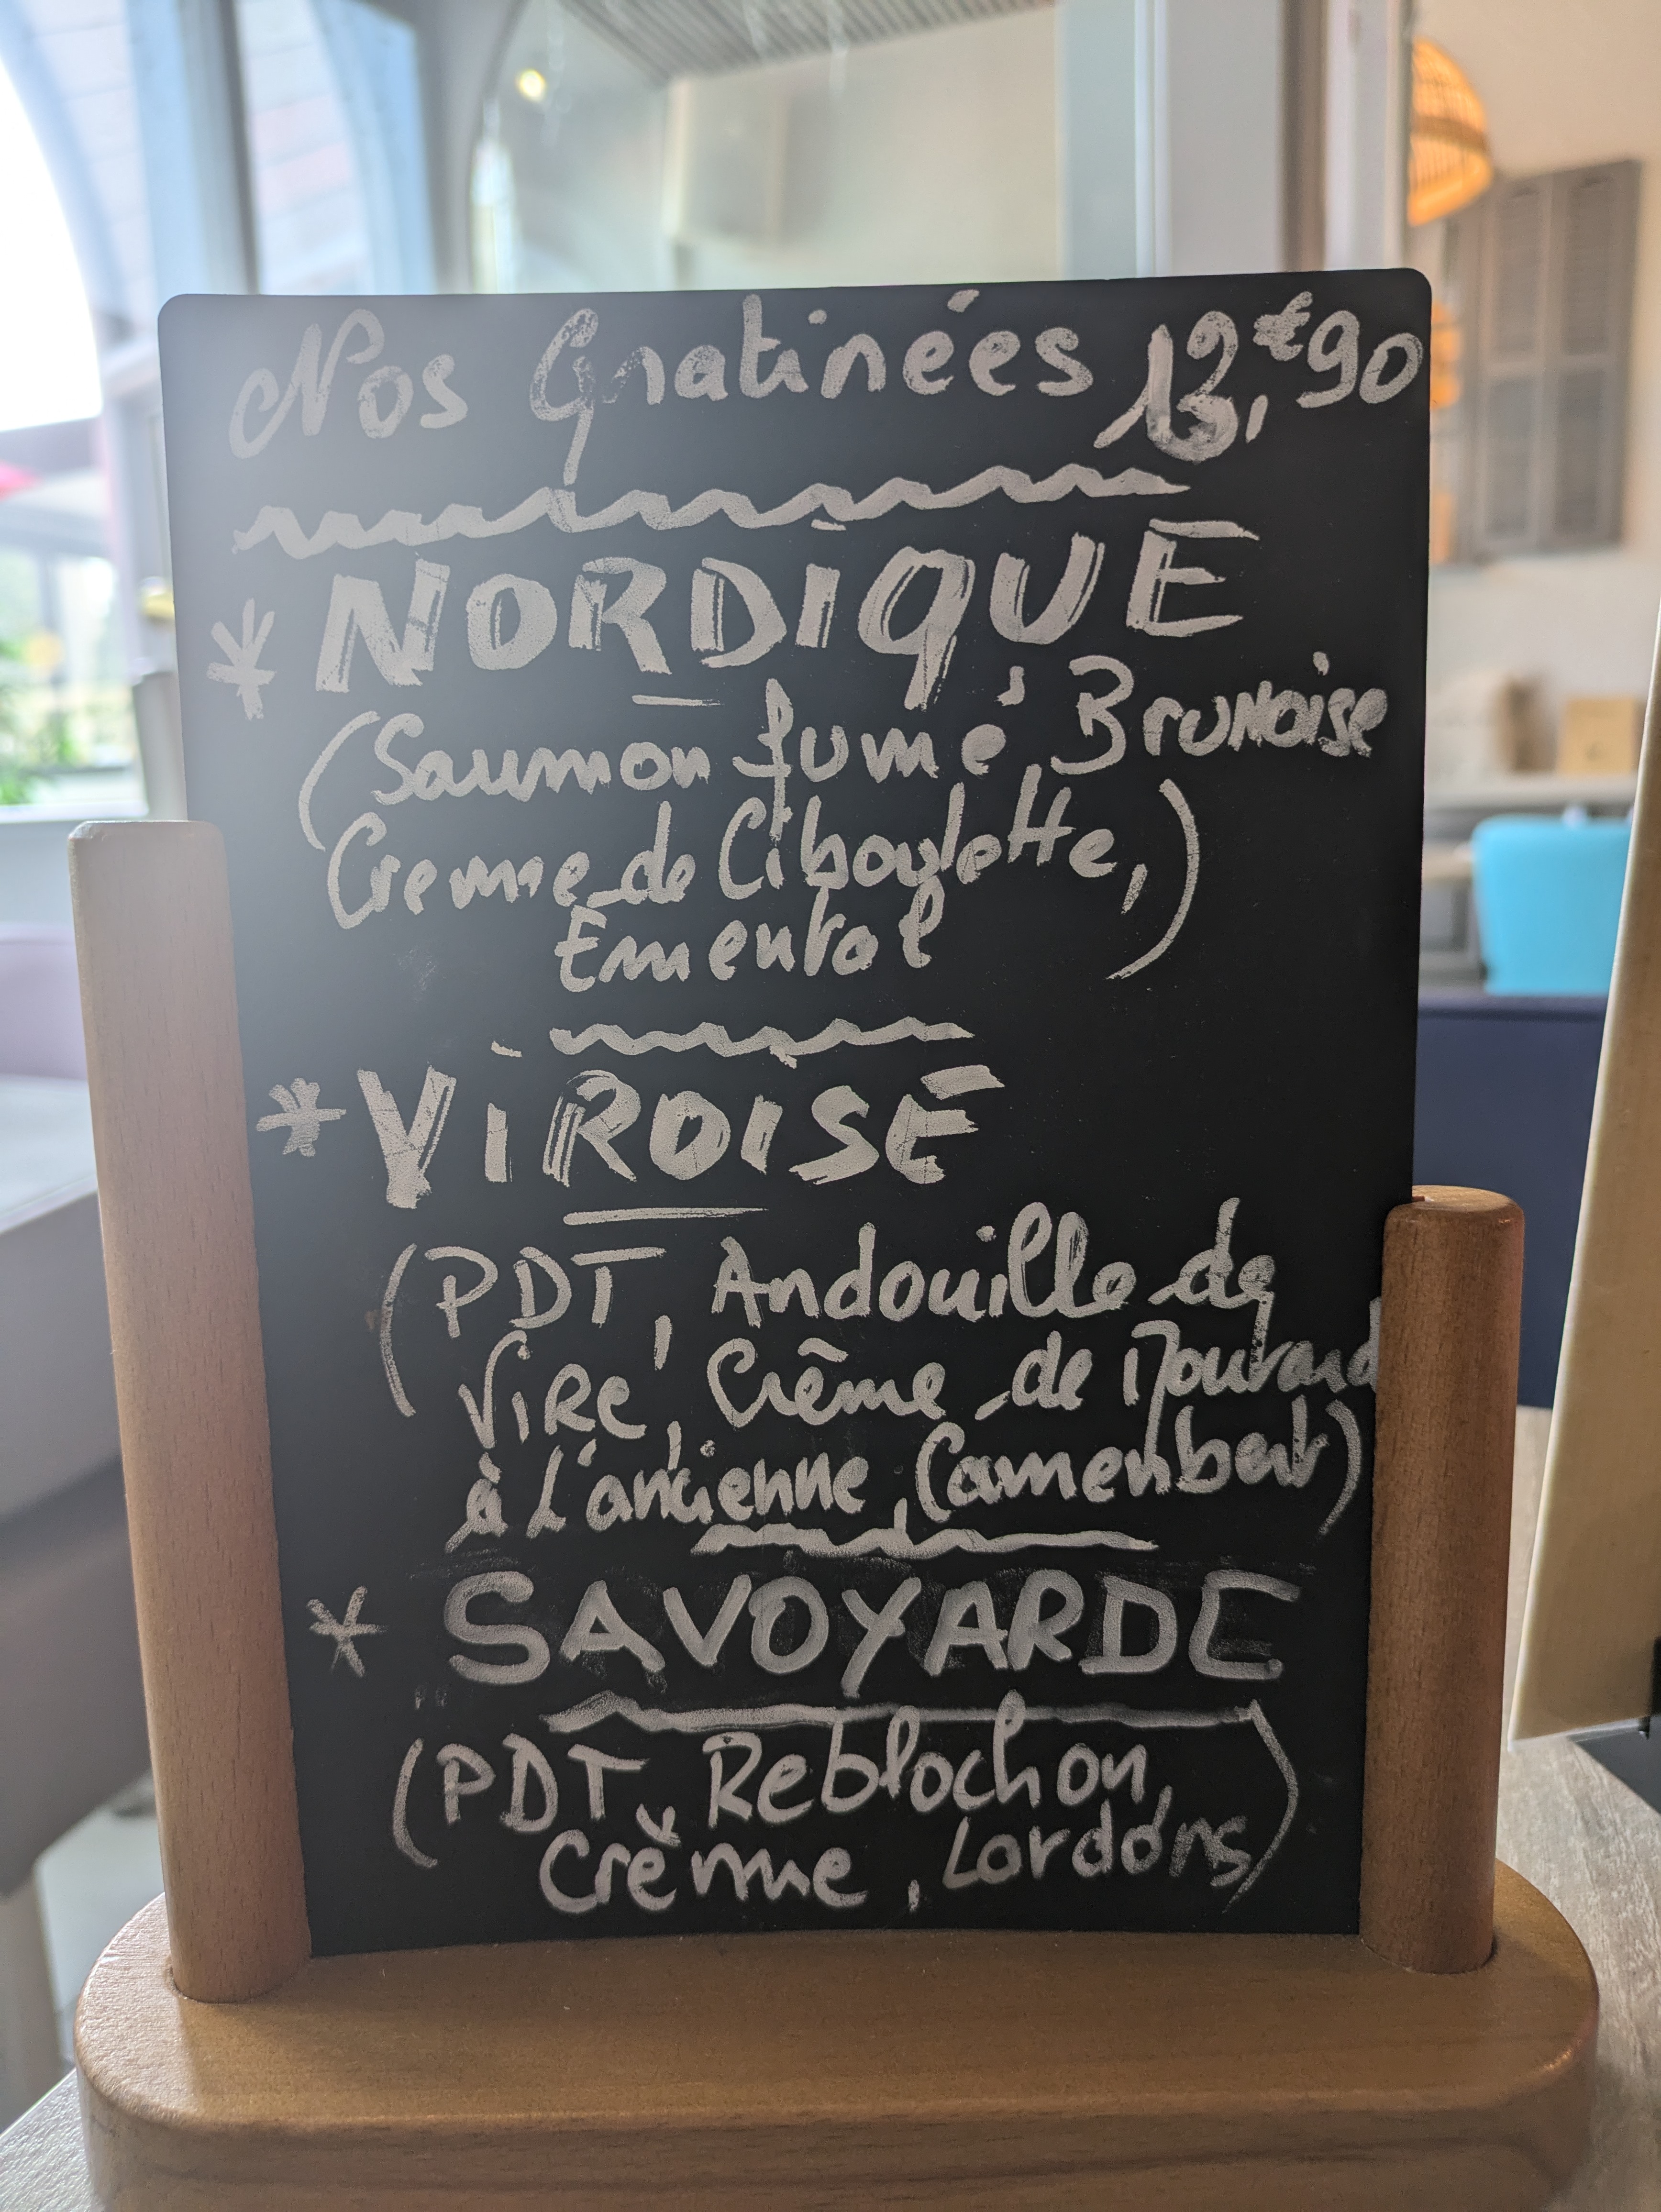 Nos Gratinées 13,€90
* NORDIQUE
(Saumon fumé, Brunoise
Creme de Ciboulette,)
Emental
* ViROISE
(PDT, Andouille de
ViRe, Crême de Moutard
à L'ancienne, Camembert)
* SAVOYARDE
(PDT, Reblochon,
Crème, Lardons)